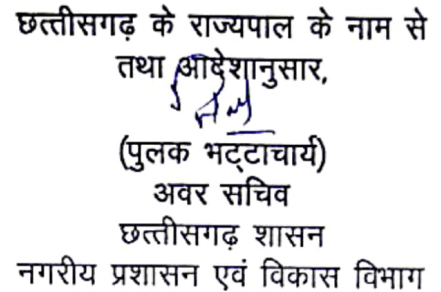 छत्तीसगढ़ के राज्यपाल के नाम से
तथा आदेशानुसार,
(पुलक भट्टाचार्य)
अवर सचिव
छत्तीसगढ़ शासन
नगरीय प्रशासन एवं विकास विभाग